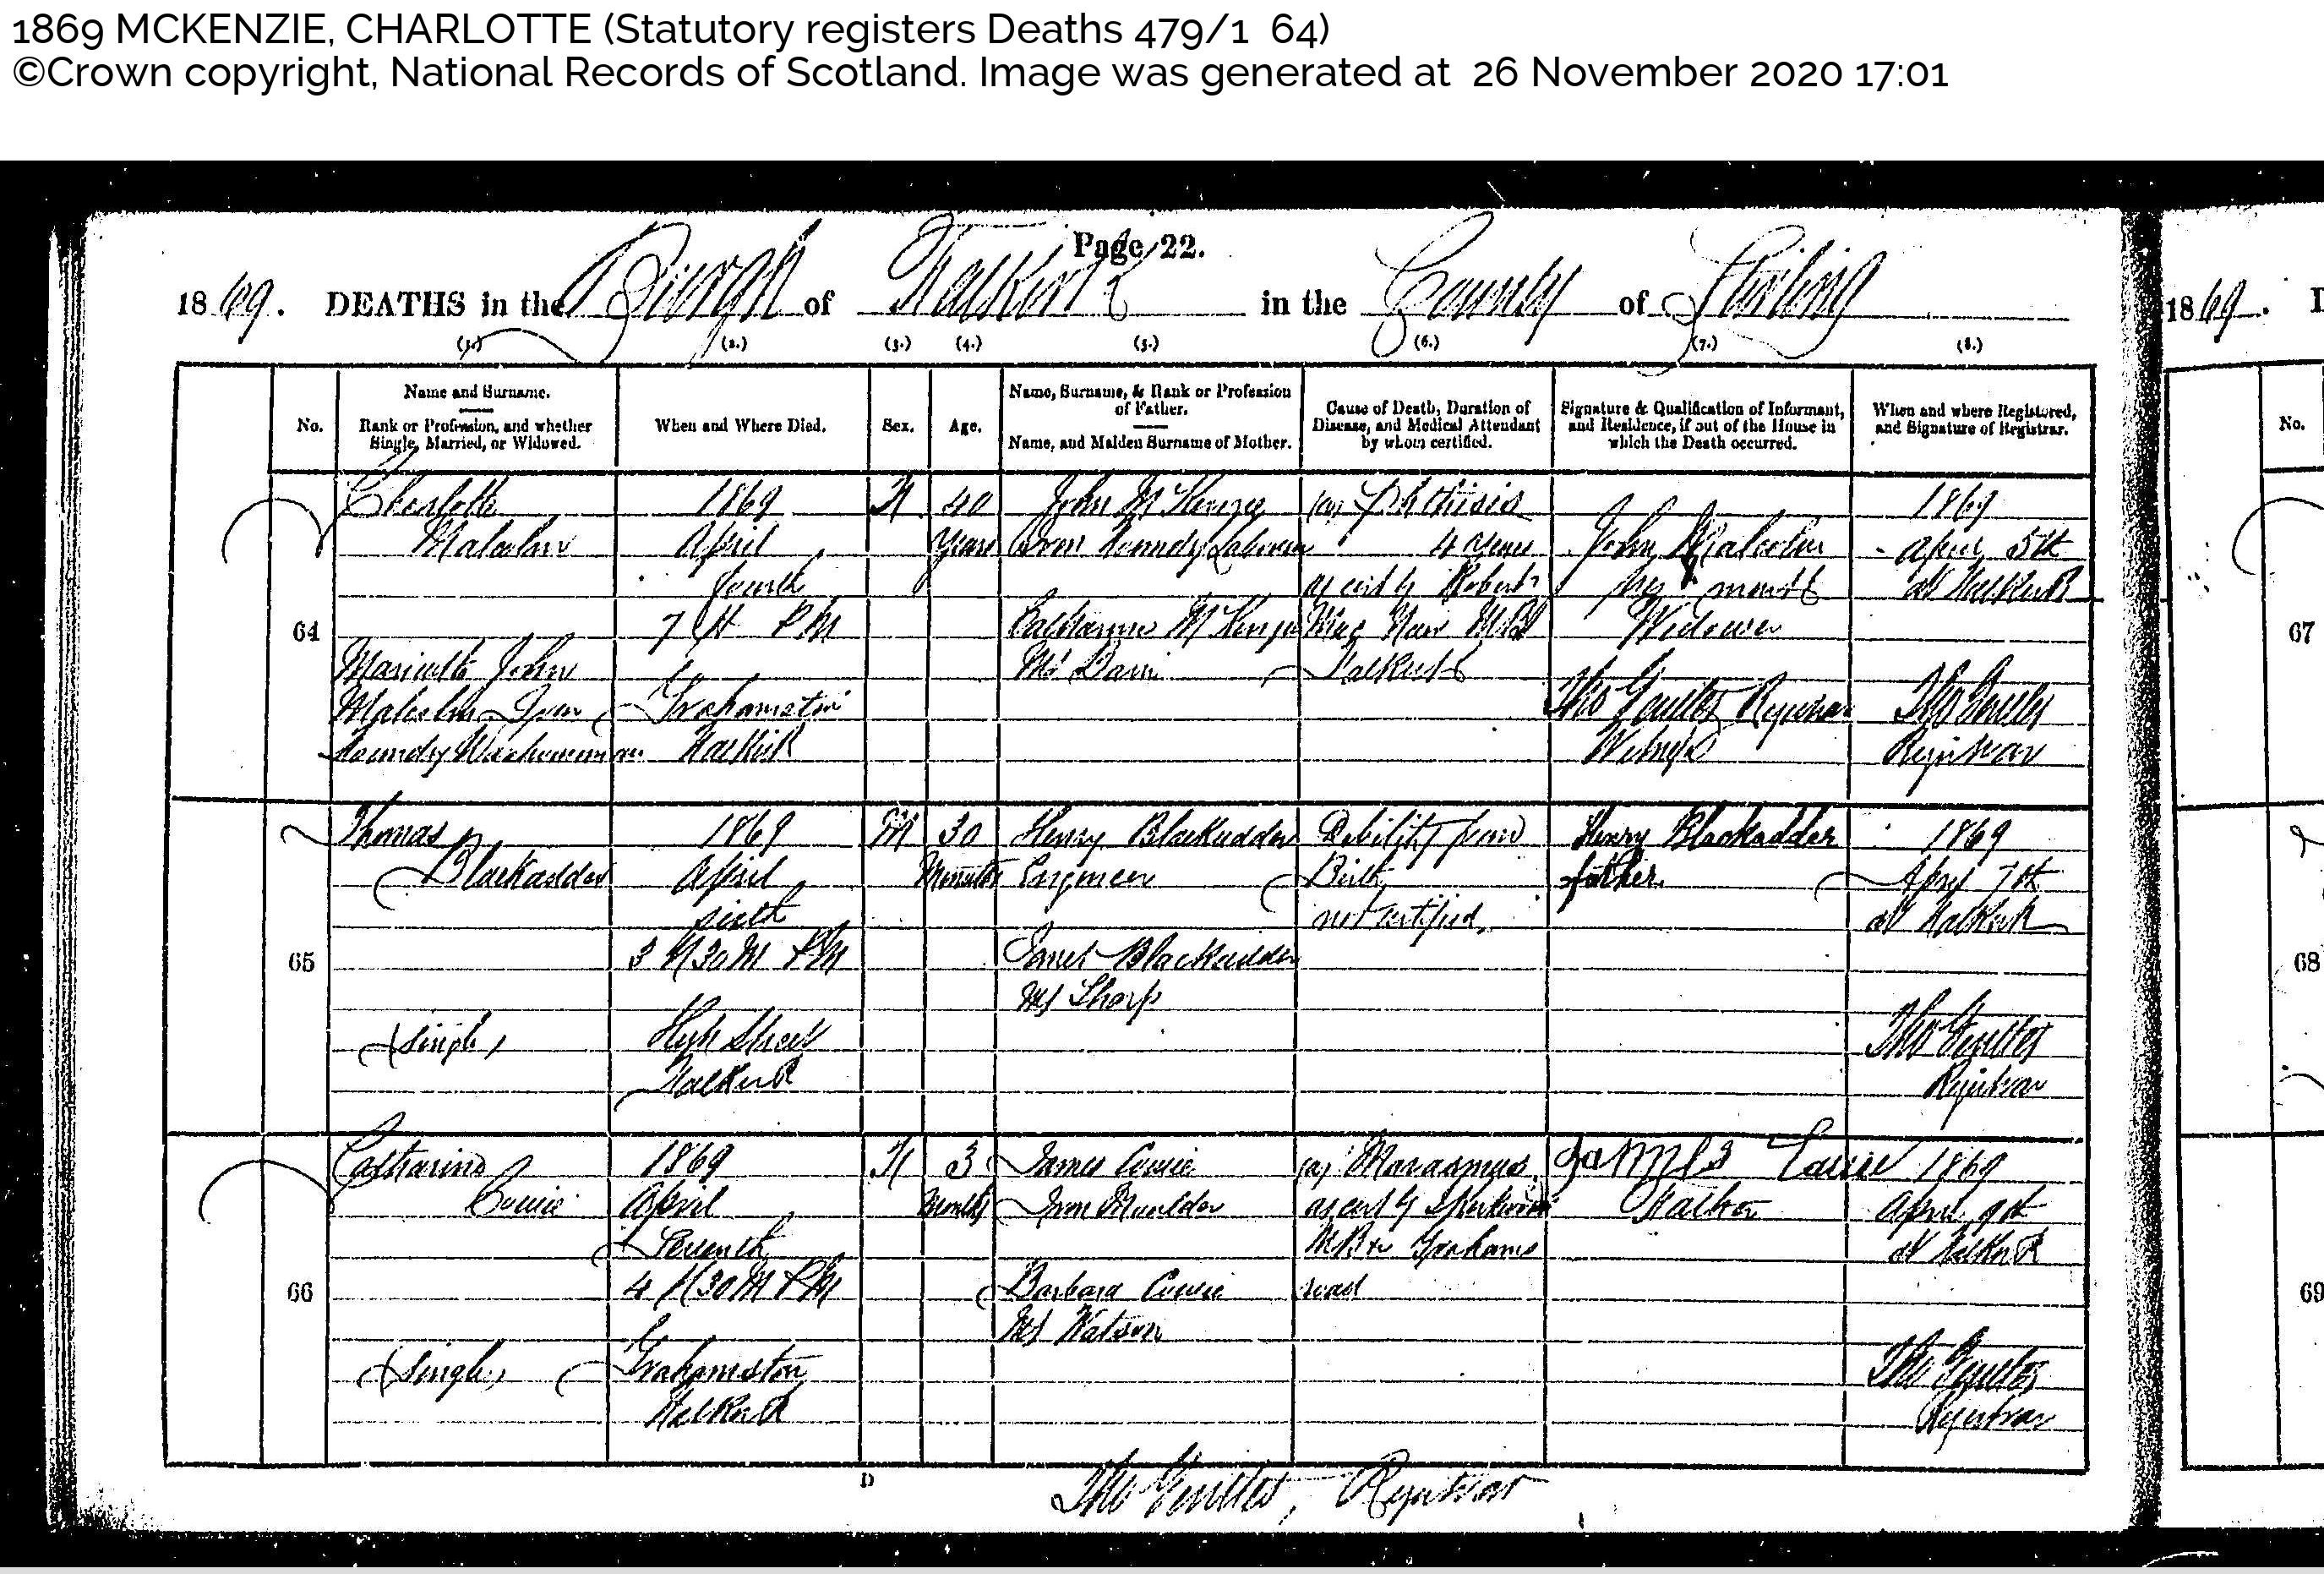 1869 MCKENZIE, CHARLOTTE (Statutory registers Deaths 479/1 64)
©Crown copyright, National Records of Scotland. Image was generated at 26 November 2020 17:01
Page 22.
1869. DEATHS in the Burgh of Falkirk in the County of Stirling
1869.
(1.) (2.) (3.) (4.) (5.) (6.) (7.) (8.)
No.
Name and Surname.
Rank or Profession, and whether
Single, Married, or Widowed.
When and Where Died.
Sex.
Age.
Name, Surname, & Rank or Profession
of Father.
Name, and Maiden Surname of Mother.
Cause of Death, Duration of
Disease, and Medical Attendant
by whom certified.
Signature & Qualification of Informant,
and Residence, if out of the House in
which the Death occurred.
When and where Registered,
and Signature of Registrar.
No.
64
Charlotte
Malcolm
Married to John
Malcolm Iron
Foundry Warehouseman
1869
April
fourth
7 H PM
Grahamston
Falkirk
F
40
Years
John McKenzie
Iron Foundry Labourer
McKenzie
MS
(a) Phthisis
4 years
as cert by Robert
MB
Falkirk
John Malcolm
his x mark
Widower
Tho Registrar
Witness
1869
April 5th
at Falkirk
Tho
Registrar
67
65
Thomas
Blackadder
(single)
1869
April
sixth
3 H 30 M PM
High Street
Falkirk
M
30
Minutes
Henry Blackadder
Engineer
Janet Blackadder
MS Sharp
Debility from
Birth
not certified.
Henry Blackadder
father.
1869
April 7th
at Falkirk
Tho
Registrar
68
66
Catharine
Cowie
(single)
1869
April
Seventh
4 H 30 M PM
Grahamston
Falkirk
F
3
Months
James Cowie
Iron Moulder
Barbara Cowie
MS Watson
(a) Marasmus
as cert by
MB Grahams
road
James Cowie
Father
1869
April 9th
at Falkirk
Tho
Registrar
69
D
Tho Registrar